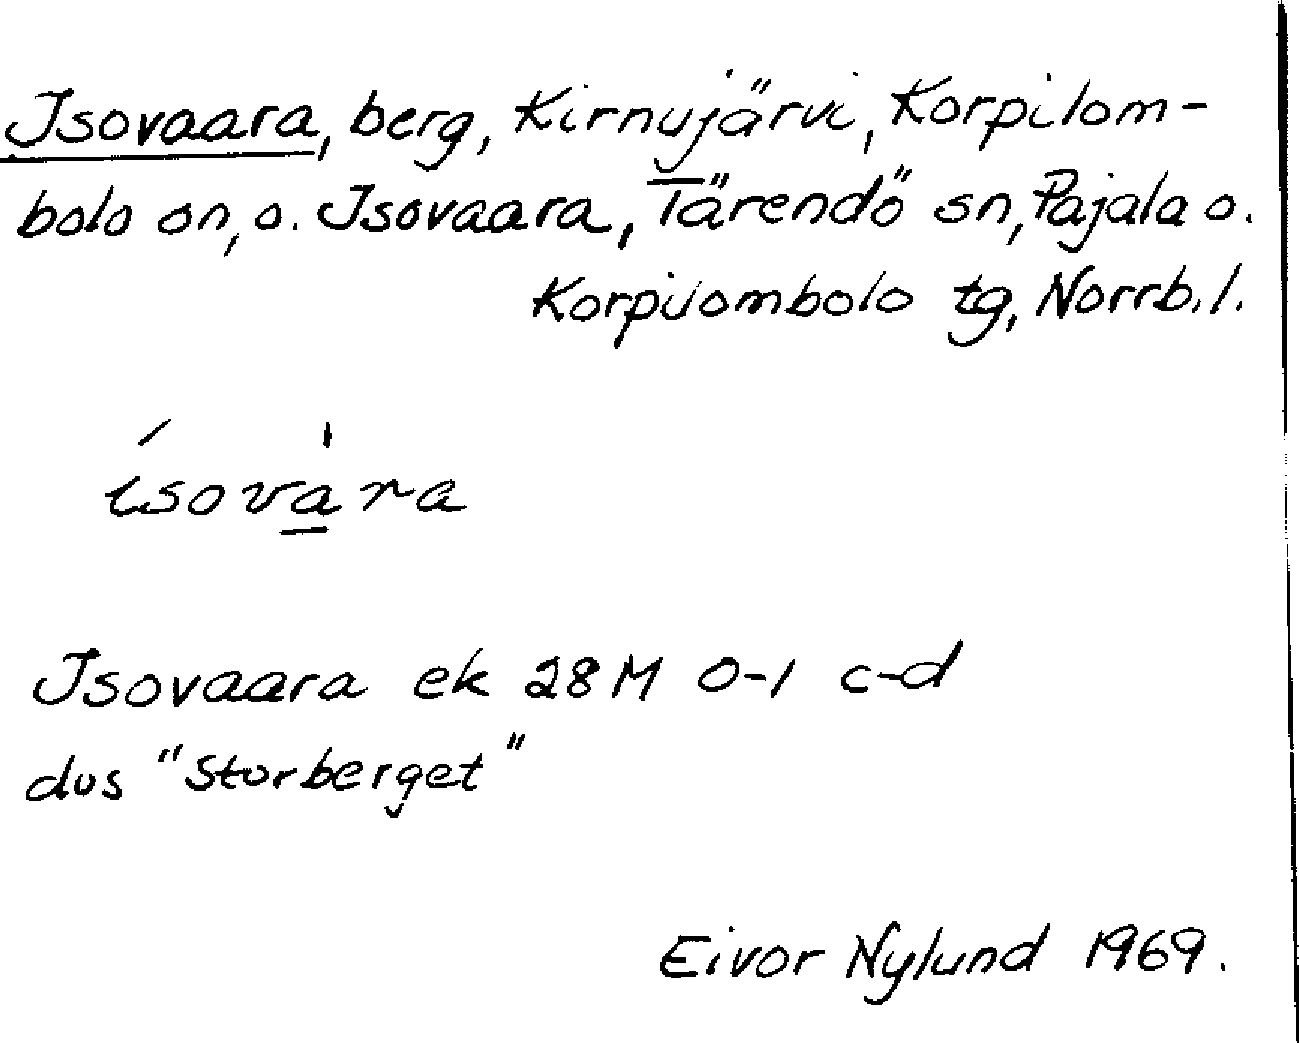 Isovaara, berg, Kirnujärvi, Korpilom-
bolo sn, o. Isovaara, Tärendö sn, Pajala o.
Korpilombolo tg, Norrb. l.
ísovàra
Isovaara ek 28M 0-1 c-d
dvs "Storberget"
Eivor Nylund 1969.